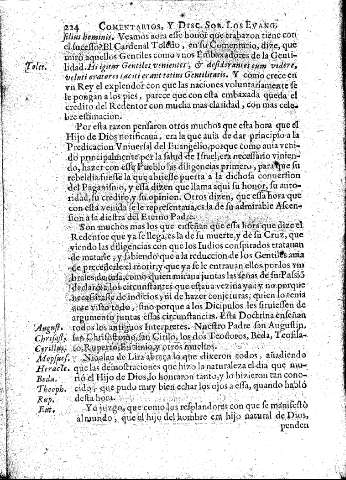 224 COMENTARIOS, Y DISC. SOB. LOS EVANG.
filius hominis. Veamos aora esse honor que trabazon tiene con
el sucesso? El Cardenal Toledo, en su Comentario, dize, que
Tolet.
mirò aquellos Gentiles como vnos Embaxadores de la Genti-
lidad. Hi igitur Gentiles venientes, & desiderantes eum videre,
veluti oratores totius erant Gentilitatis. Y como crece en
vn Rey el explendor con que las naciones voluntariamente se
le pongan a los pies, parece que con esta embaxada queda el
credito del Redentor con mucha mas claridad, con mas cele-
bre estimacion.
Por esta razon pensaron otros muchos que esta hora que el
Hijo de Dios notificava, era la que avia de dar principio a la
Predicacion Vniversal del Evangelio, porque como avia veni-
do principalmente por la salud de Israel, era necessario vinien-
do, hazer con esse Pueblo las diligencias primero, para que su
rebeldia fuesse la que abriesse puerta a la dichosa conversion
del Paganismo, y essa dizen que llama aqui su honor, su auto-
ridad, su credito, y su opinion. Otros dizen, que essa hora que
con esta venida se le representava, es la de su admirable Ascen-
sion a la diestra del Eterno Padre.
Son muchos mas los que enseñan que essa hora que dize el
Redentor que ya se llega, es la de su muerte, y de su Cruz, que
viendo las diligencias con que los Iudios conspirados tratavan
de matarle, y sabiendo que a la reduccion de los Gentiles avia
de preceder el morir, y que ya se le entravan ellos por los vm-
brales de casa, como quien mirava juntas las señas de su Passiõ
declarò a los circunstantes que estava vezina ya: y no porque
necessitasse de indicios, ni de hazer conjeturas, quien lo tenia
todo visto, sino porque a los Dicipulos les sirviessen de
argumento juntas essas circunstancias. Esta Doctrina enseñan
August.
todos los antiguos Interpretes. Nuestro Padre san Augustin,
Chrysost.
san Chrisostomo, san Cirilo, los dos Teodoros, Beda, Teofila-
Cyrillus.
to, Ruperto, Eutimio, y otros muchos.
Mopsues.
Nicolao de Lira abraçò lo que dixeron todos, añadiendo
Heracle.
que las demostraciones que hizo la naturaleza el dia que mu-
Beda.
riò el Hijo de Dios, lo honraron tanto, y lo hizieron tan cono-
Theoph.
cido, que pudo muy bien echar los ojos a essa, quando hablò
Rup.
desta hora.
Eut.
Yo juzgo, que como los resplandores con que se manifestò
al mundo, que el hijo del hombre era hijo natural de Dios,
penden